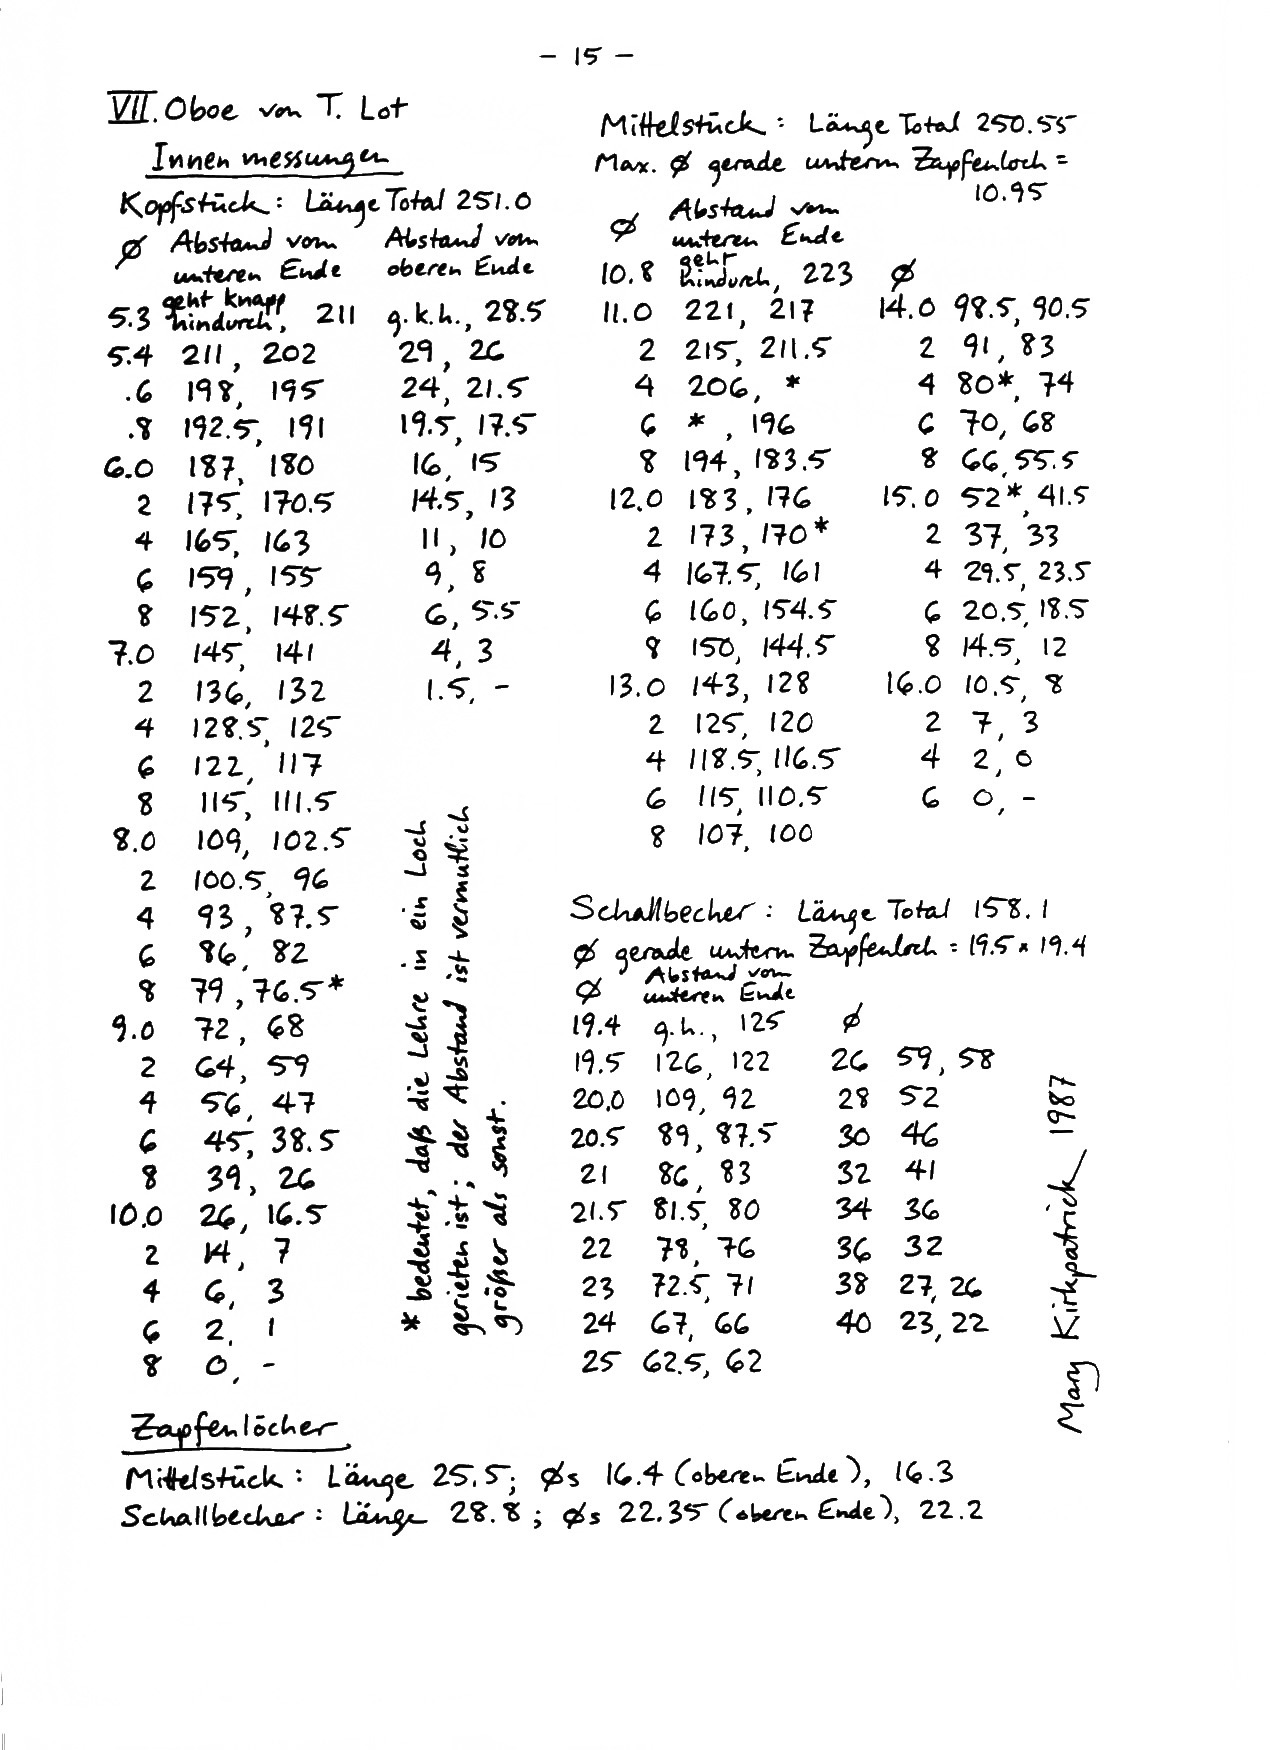 - 15 -
VII. Oboe von T. Lot
Innenmessungen
Kopfstück: Länge Total 251.0
ø Abstand vom unteren Ende Abstand vom oberen Ende
5.3 geht knapp hindurch, 211 g.k.h., 28.5
5.4 211, 202 29, 26
.6 198, 195 24, 21.5
.8 192.5, 191 19.5, 17.5
6.0 187, 180 16, 15
2 175, 170.5 14.5, 13
4 165, 163 11, 10
6 159, 155 9, 8
8 152, 148.5 6, 5.5
7.0 145, 141 4, 3
2 136, 132 1.5, -
4 128.5, 125
6 122, 117
8 115, 111.5
8.0 109, 102.5
2 100.5, 96
4 93, 87.5
6 86, 82
8 79, 76.5*
9.0 72, 68
2 64, 59
4 56, 47
6 45, 38.5
8 39, 26
10.0 26, 16.5
2 14, 7
4 6, 3
6 2, 1
8 0, -
* bedeutet, daß die Lehre in ein Loch
geraten ist; der Abstand ist vermutlich
größer als sonst.
Mittelstück: Länge Total 250.55
Max. ø gerade unterm Zapfenloch =
10.95
ø Abstand vom
unteren Ende
10.8 geht hindurch, 223 ø
11.0 221, 217 14.0 98.5, 90.5
2 215, 211.5 2 91, 83
4 206, * 4 80*, 74
6 *, 196 6 70, 68
8 194, 183.5 8 66, 55.5
12.0 183, 176 15.0 52*, 41.5
2 173, 170* 2 37, 33
4 167.5, 161 4 29.5, 23.5
6 160, 154.5 6 20.5, 18.5
8 150, 144.5 8 14.5, 12
13.0 143, 128 16.0 10.5, 8
2 125, 120 2 7, 3
4 118.5, 116.5 4 2, 0
6 115, 110.5 6 0, -
8 107, 100
Schallbecher: Länge Total 158.1
ø gerade unterm Zapfenloch = 19.5 x 19.4
ø Abstand vom
unteren Ende
19.4 g.h., 125 ø
19.5 126, 122 26 59, 58
20.0 109, 92 28 52
20.5 89, 87.5 30 46
21 86, 83 32 41
21.5 81.5, 80 34 36
22 78, 76 36 32
23 72.5, 71 38 27, 26
24 67, 66 40 23, 22
25 62.5, 62
Mary Kirkpatrick 1987
Zapfenlöcher
Mittelstück: Länge 25.5; øs 16.4 (oberen Ende), 16.3
Schallbecher: Länge 28.8; øs 22.35 (oberen Ende), 22.2